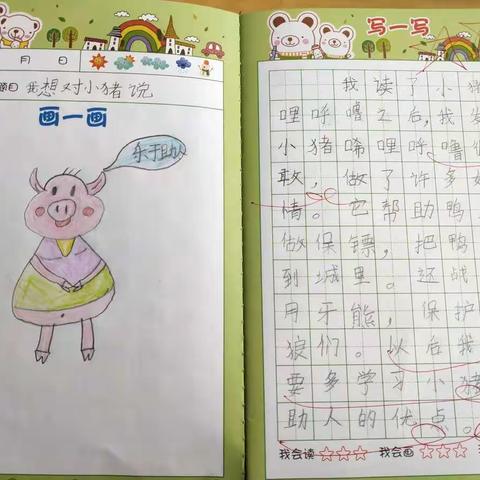 月 日
题目 我想对小猪说
画一画
乐于助人
写一写
我读了小猪
哩呼噜之后，我发
小猪唏哩呼噜
敢，做了许多
情。它帮助鸭
做保镖，把鸭
到城里。还战
用牙熊，保护
狼们。以后我
要多学习小猪
助人的优点。
我会读☆☆☆ 我会画☆☆☆